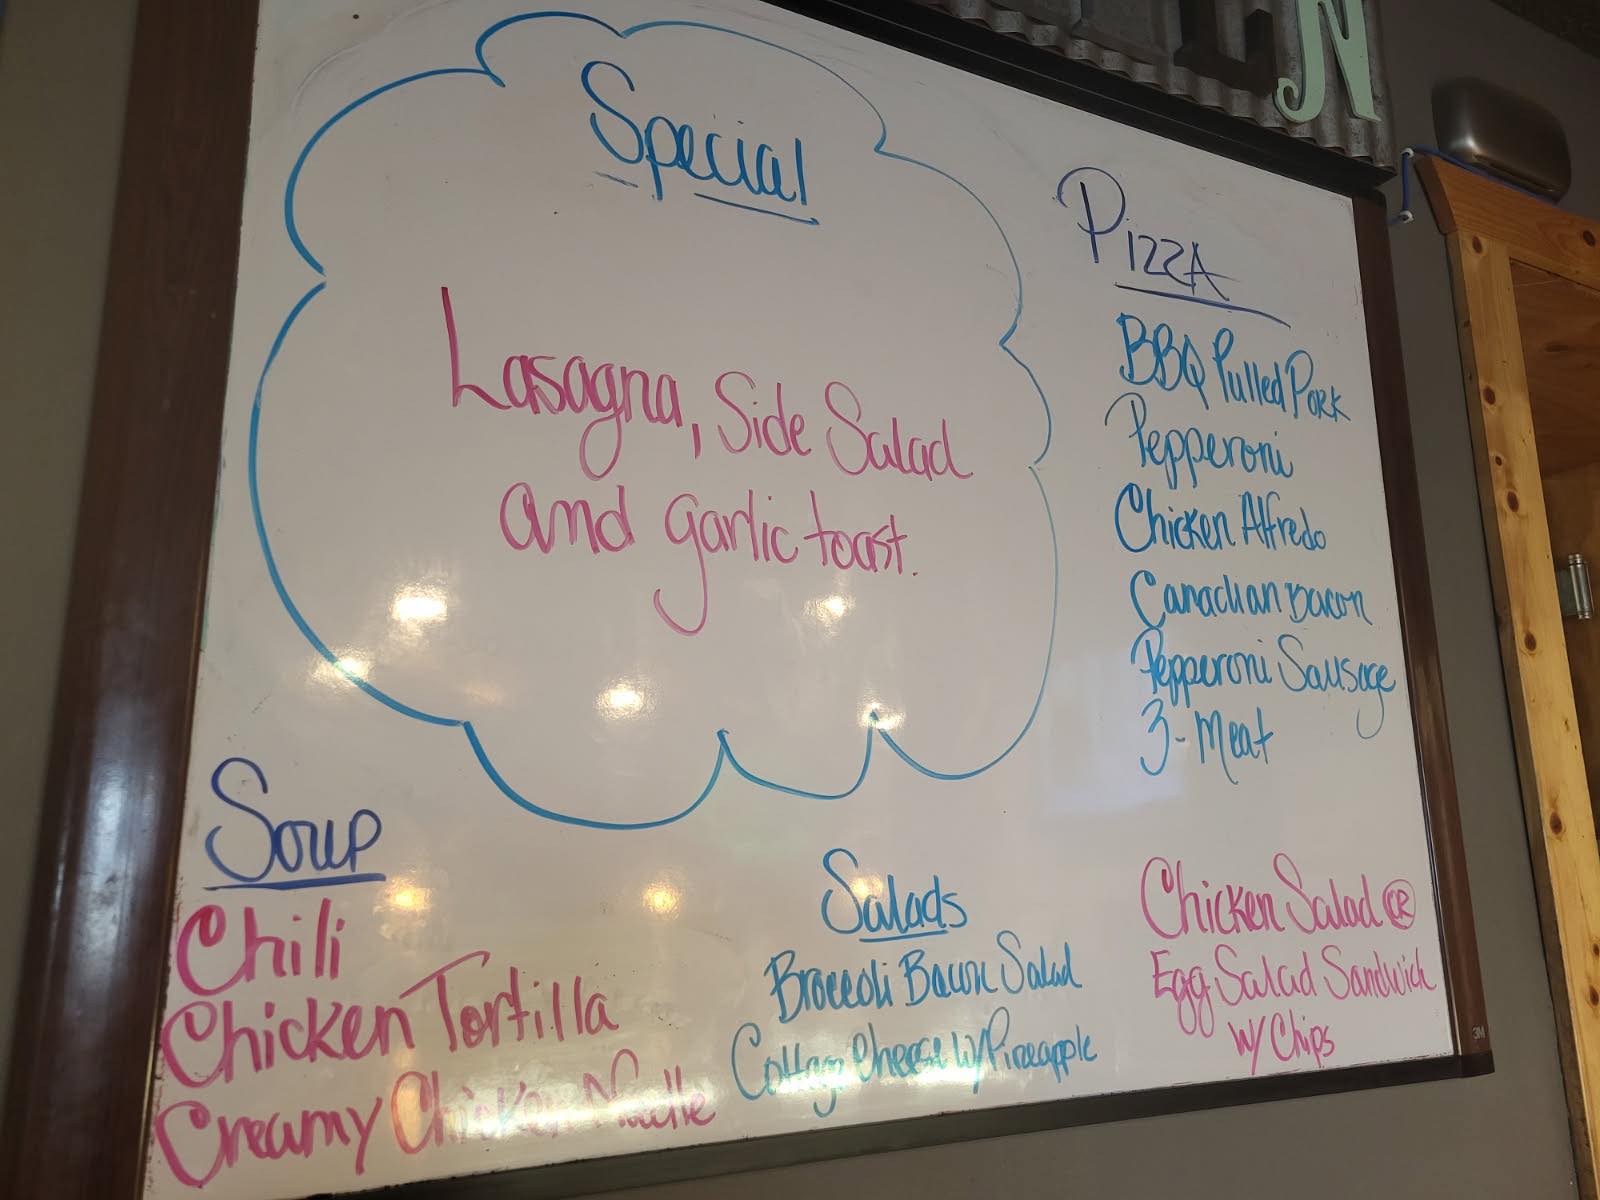 N
Special
Lasagna, Side Salad
and garlic toast.
Pizza
BBQ Pulled Pork
Pepperoni
Chicken Alfredo
Canadian Bacon
Pepperoni Sausage
3-Meat
Soup
Chili
Chicken Tortilla
Creamy Chicken Noodle
Salads
Broccoli Bacon Salad
Cottage Cheese w/ Pineapple
Chicken Salad OR
Egg Salad Sandwich
w/ Chips
3M